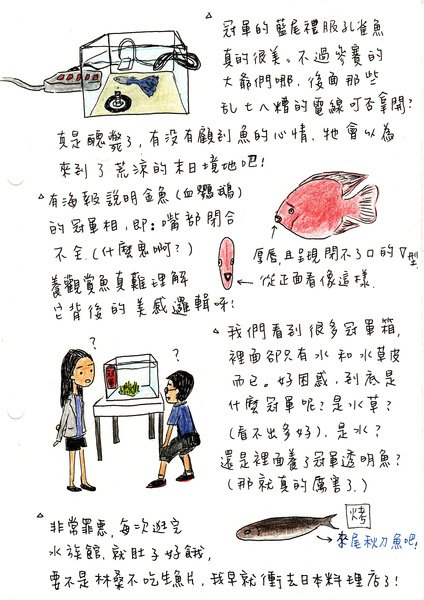 △ 冠軍的藍尾禮服孔雀魚
真的很美。不過參賽的
大爺們哪，後面那些
乱七八糟的電線可否拿開?
真是醜斃了，有没有顧到魚的心情，牠會以為
來到了荒涼的末日境地吧!
△ 有海報說明金魚(血鸚鵡)
的冠軍相，即：嘴部閉合
不全.(什麼鬼啊?)
養觀賞魚真難理解
它背後的美感邏輯呀!
厚唇,且呈現閉不了口的▽型
← 從正面看像這樣.
△ 我們看到很多冠軍箱，
裡面卻只有水和水草皮
而已。好困惑，到底是
什麼冠軍呢? 是水草?
(看不出多好). 是水?
還是裡面養了冠軍透明魚?
(那就真的厲害了.)
?
?
冠軍
△ 非常罪惡，每次逛完
水族館.就肚子好餓，
要不是林桑不吃生魚片，我早就衝去日本料理店了!
烤
→ 來尾秋刀魚吧!